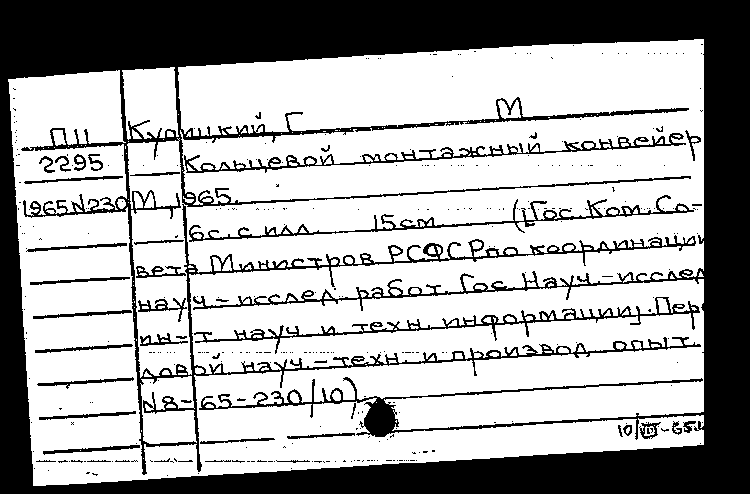 П11 Курицкий, Г М
2295 Кольцевой монтажный конвейер
1965N230 М, 1965.
6с. с илл. 15см ([Гос. Ком. Со-
вета Министров РСФСР по координации
науч.-исслед. работ. Гос. Науч.-исслед
ин-т. науч и техн. информации]. Пере
довой науч.-техн. и производ опыт.
N8-65-230/10)
10/VII-65г.